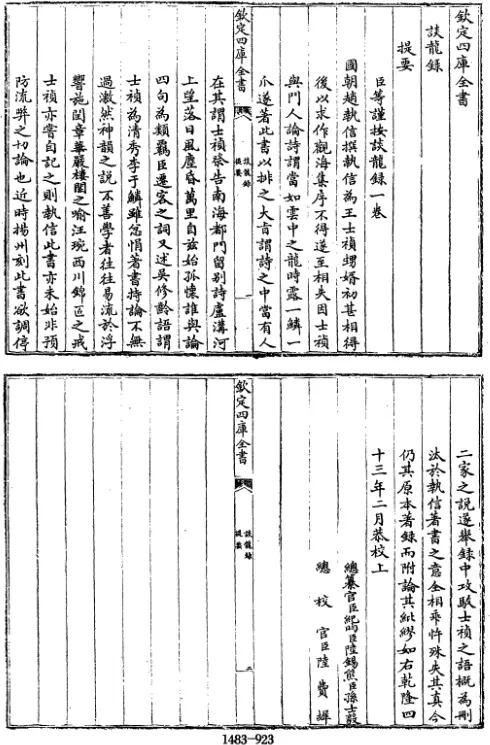 欽定四庫全書
談龍錄
提要
臣等謹按談龍錄一卷
國朝趙執信撰執信為王士禎甥婿初甚相得
後以求作觀海集序不得遂至相失因士禎
與門人論詩謂當如雲中之龍時露一鱗一
爪遂著此書以排之大旨謂詩之中當有人
欽定四庫全書
談龍錄
提要
一
在其謂士禎祭告南海都門留別詩盧溝河
上望落日風塵昏萬里自兹始孤懷誰與論
四句為類羈臣遷客之詞又述吳修齡語謂
士禎為清秀李于鱗雖忿悁著書持論不無
過激然神韻之說不善學者往往易流於浮
響施閏章華嚴樓閣之喻汪琬西川錦匠之戒
士禎亦嘗自記之則執信此書亦未始非預
防流弊之切論也近時揚州刻此書欲調停
二家之說遂舉錄中攻駁士禎之語概為刪
汰於執信著書之意全相乖忤殊失其真今
仍其原本著錄而附論其紕繆如右乾隆四
十三年二月恭校上
總纂官臣紀昀臣陸錫熊臣孫士毅
總校官臣陸費墀
欽定四庫全書
談龍錄
提要
二
1483-923